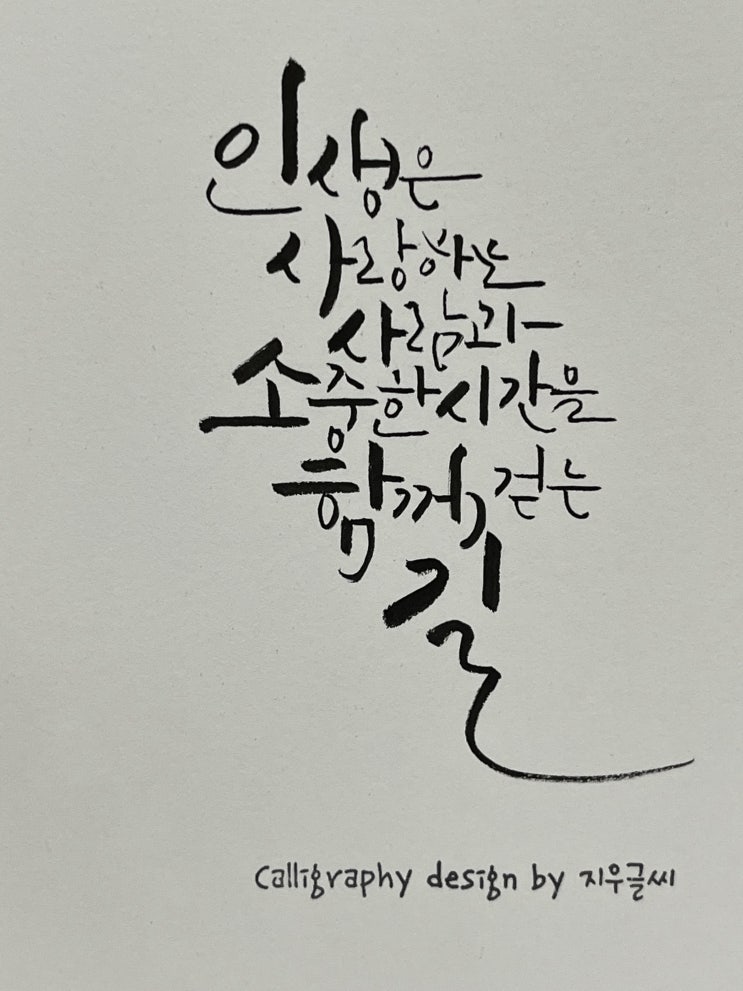 인생은
사랑하는
사람과
소중한 시간을
함께 걷는
길
Calligraphy design by 지우글씨